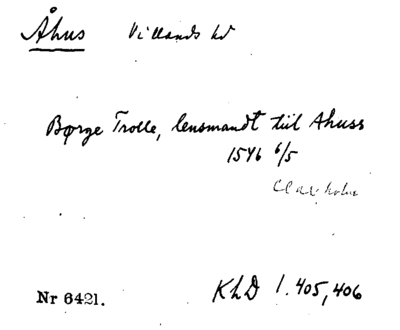 Åhus Villands hd
Børge Trolle, lensmandt tiil Ahuss
1546 6/5
KhD 1.405,406
Nr 6421.